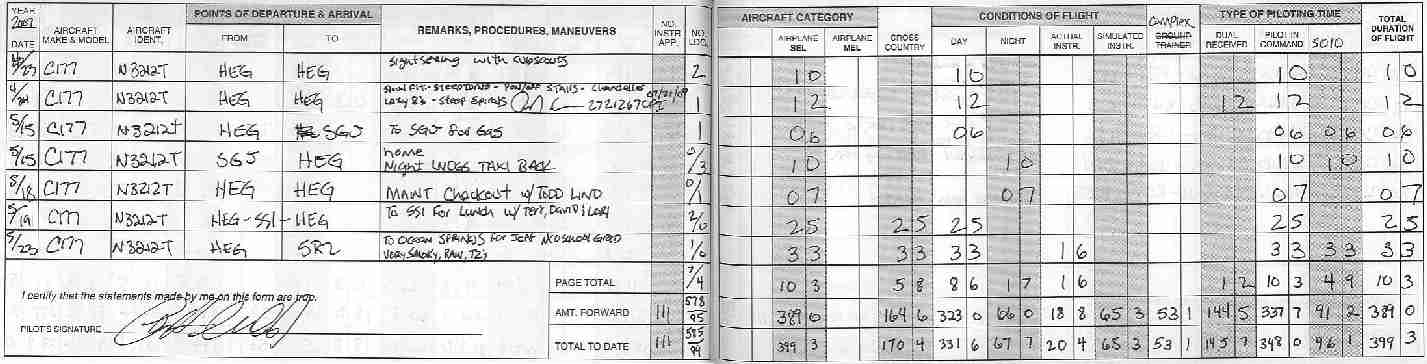 YEAR 2007 DATE AIRCRAFT MAKE & MODEL AIRCRAFT IDENT. POINTS OF DEPARTURE & ARRIVAL FROM TO REMARKS, PROCEDURES, MANEUVERS NO. INSTR APP. NO. LDG. AIRCRAFT CATEGORY AIRPLANE SEL AIRPLANE MEL CROSS COUNTRY CONDITIONS OF FLIGHT DAY NIGHT ACTUAL INSTR. SIMULATED INSTR. Complex GROUND TRAINER TYPE OF PILOTING TIME DUAL RECEIVED PILOT IN COMMAND SOLO TOTAL DURATION OF FLIGHT
4/23 C177 N3212T HEG HEG sightseeing with cubscouts 2 1 0 1 0 1 0 1 0
4/24 C177 N3212T HEG HEG Stalls - Chandelles
Lazy 8's - Steep Spirals 2721267CFI 1 1 2 1 2 1 2 1 2 1 2
5/15 C177 N3212T HEG SGJ To SGJ for Gas 1 0 6 0 6 0 6 0 6 0 6
5/15 C177 N3212T SGJ HEG home
Night LNDGS TAXI BACK 0/3 1 0 1 0 1 0 1 0 1 0
5/18 C177 N3212T HEG HEG MAINT Checkout w/ TODD LIND 0/1 0 7 0 7 0 7 0 7
5/19 C177 N3212T HEG-SSI-HEG To SSI For Lunch w/ Teri, David & Lori 2/0 2 5 2 5 2 5 2 5 2 5
5/23 C177 N3212T HEG 5R2 TO OCEAN SPRINGS for JEFF
Very Smoky, RAIN, TZ's 1/0 3 3 3 3 3 3 1 6 3 3 3 3 3 3
PAGE TOTAL 7/4 10 3 5 8 8 6 1 7 1 6 1 2 10 3 4 9 10 3
I certify that the statements made by me on this form are true.
AMT. FORWARD 111 578/95 389 0 164 6 323 0 66 0 18 8 65 3 53 1 144 5 337 7 91 2 389 0
PILOT'S SIGNATURE
TOTAL TO DATE 111 585/99 399 3 170 4 331 6 67 7 20 4 65 3 53 1 145 7 348 0 96 1 399 3